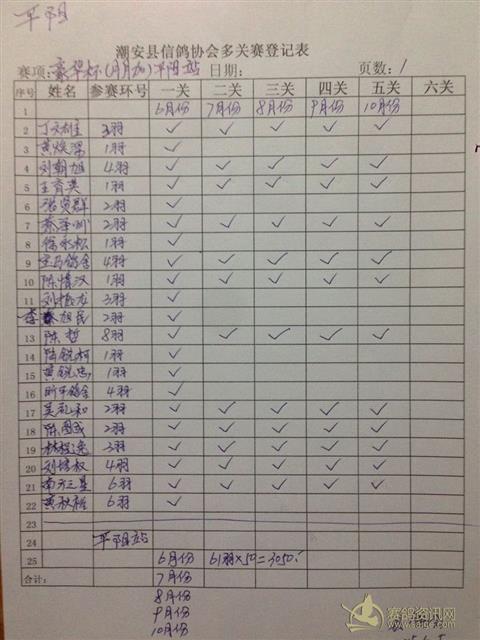 平阳
潮安县信鸽协会多关赛登记表
赛项:豪华杯(月月加)平阳站 日期: 页数:1
序号 姓名 参赛环号 一关 二关 三关 四关 五关 六关
1 6月份 7月份 8月份 9月份 10月份
2 3羽 ✓ ✓ ✓ ✓ ✓
3 黄焕深 1羽 ✓
4 刘朝旭 4羽 ✓ ✓ ✓ ✓ ✓
5 王育英 1羽 ✓ ✓ ✓ ✓ ✓
6 张贤群 2羽 ✓
7 蔡泽州 2羽 ✓ ✓ ✓ ✓ ✓
8 徐永松 1羽 ✓
9 宝马鸽舍 4羽 ✓ ✓ ✓ ✓ ✓
10 陈惜汉 1羽 ✓ ✓ ✓ ✓ ✓
11 3羽 ✓
李旭民 2羽 ✓
13 陈哲 8羽 ✓ ✓ ✓ ✓ ✓
14 陆锐柯 1羽 ✓
15 黄锐忠 1羽 ✓
16 昕宇鸽舍 4羽 ✓
17 吴礼和 2羽 ✓ ✓ ✓ ✓ ✓
18 陈图或 2羽 ✓ ✓ ✓ ✓ ✓
19 3羽 ✓ ✓ ✓ ✓ ✓
20 刘培权 4羽 ✓ ✓ ✓ ✓ ✓
21 南方三星 6羽 ✓ ✓ ✓ ✓ ✓
22 黄秋裕 6羽 ✓
23
24 平阳站
25 6月份 61羽×50=3050.
合计: 7月份
8月份
9月份
10月份
赛鸽资讯网